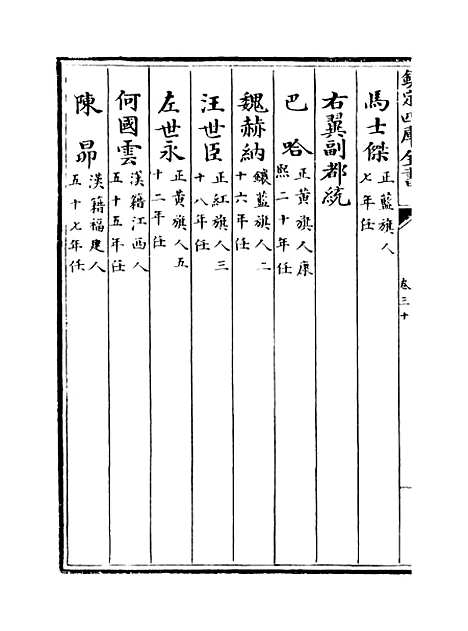 欽定四庫全書
卷三十
馬士傑 正藍旗人
七年任
右翼副都統
巴哈 正黃旗人康
熙二十年任
魏赫納 鑲藍旗人二
十六年任
汪世臣 正紅旗人三
十八年任
左世永 正黃旗人五
十二年任
何國雲 漢籍江西人
五十五年任
陳昴 漢籍福建人
五十七年任